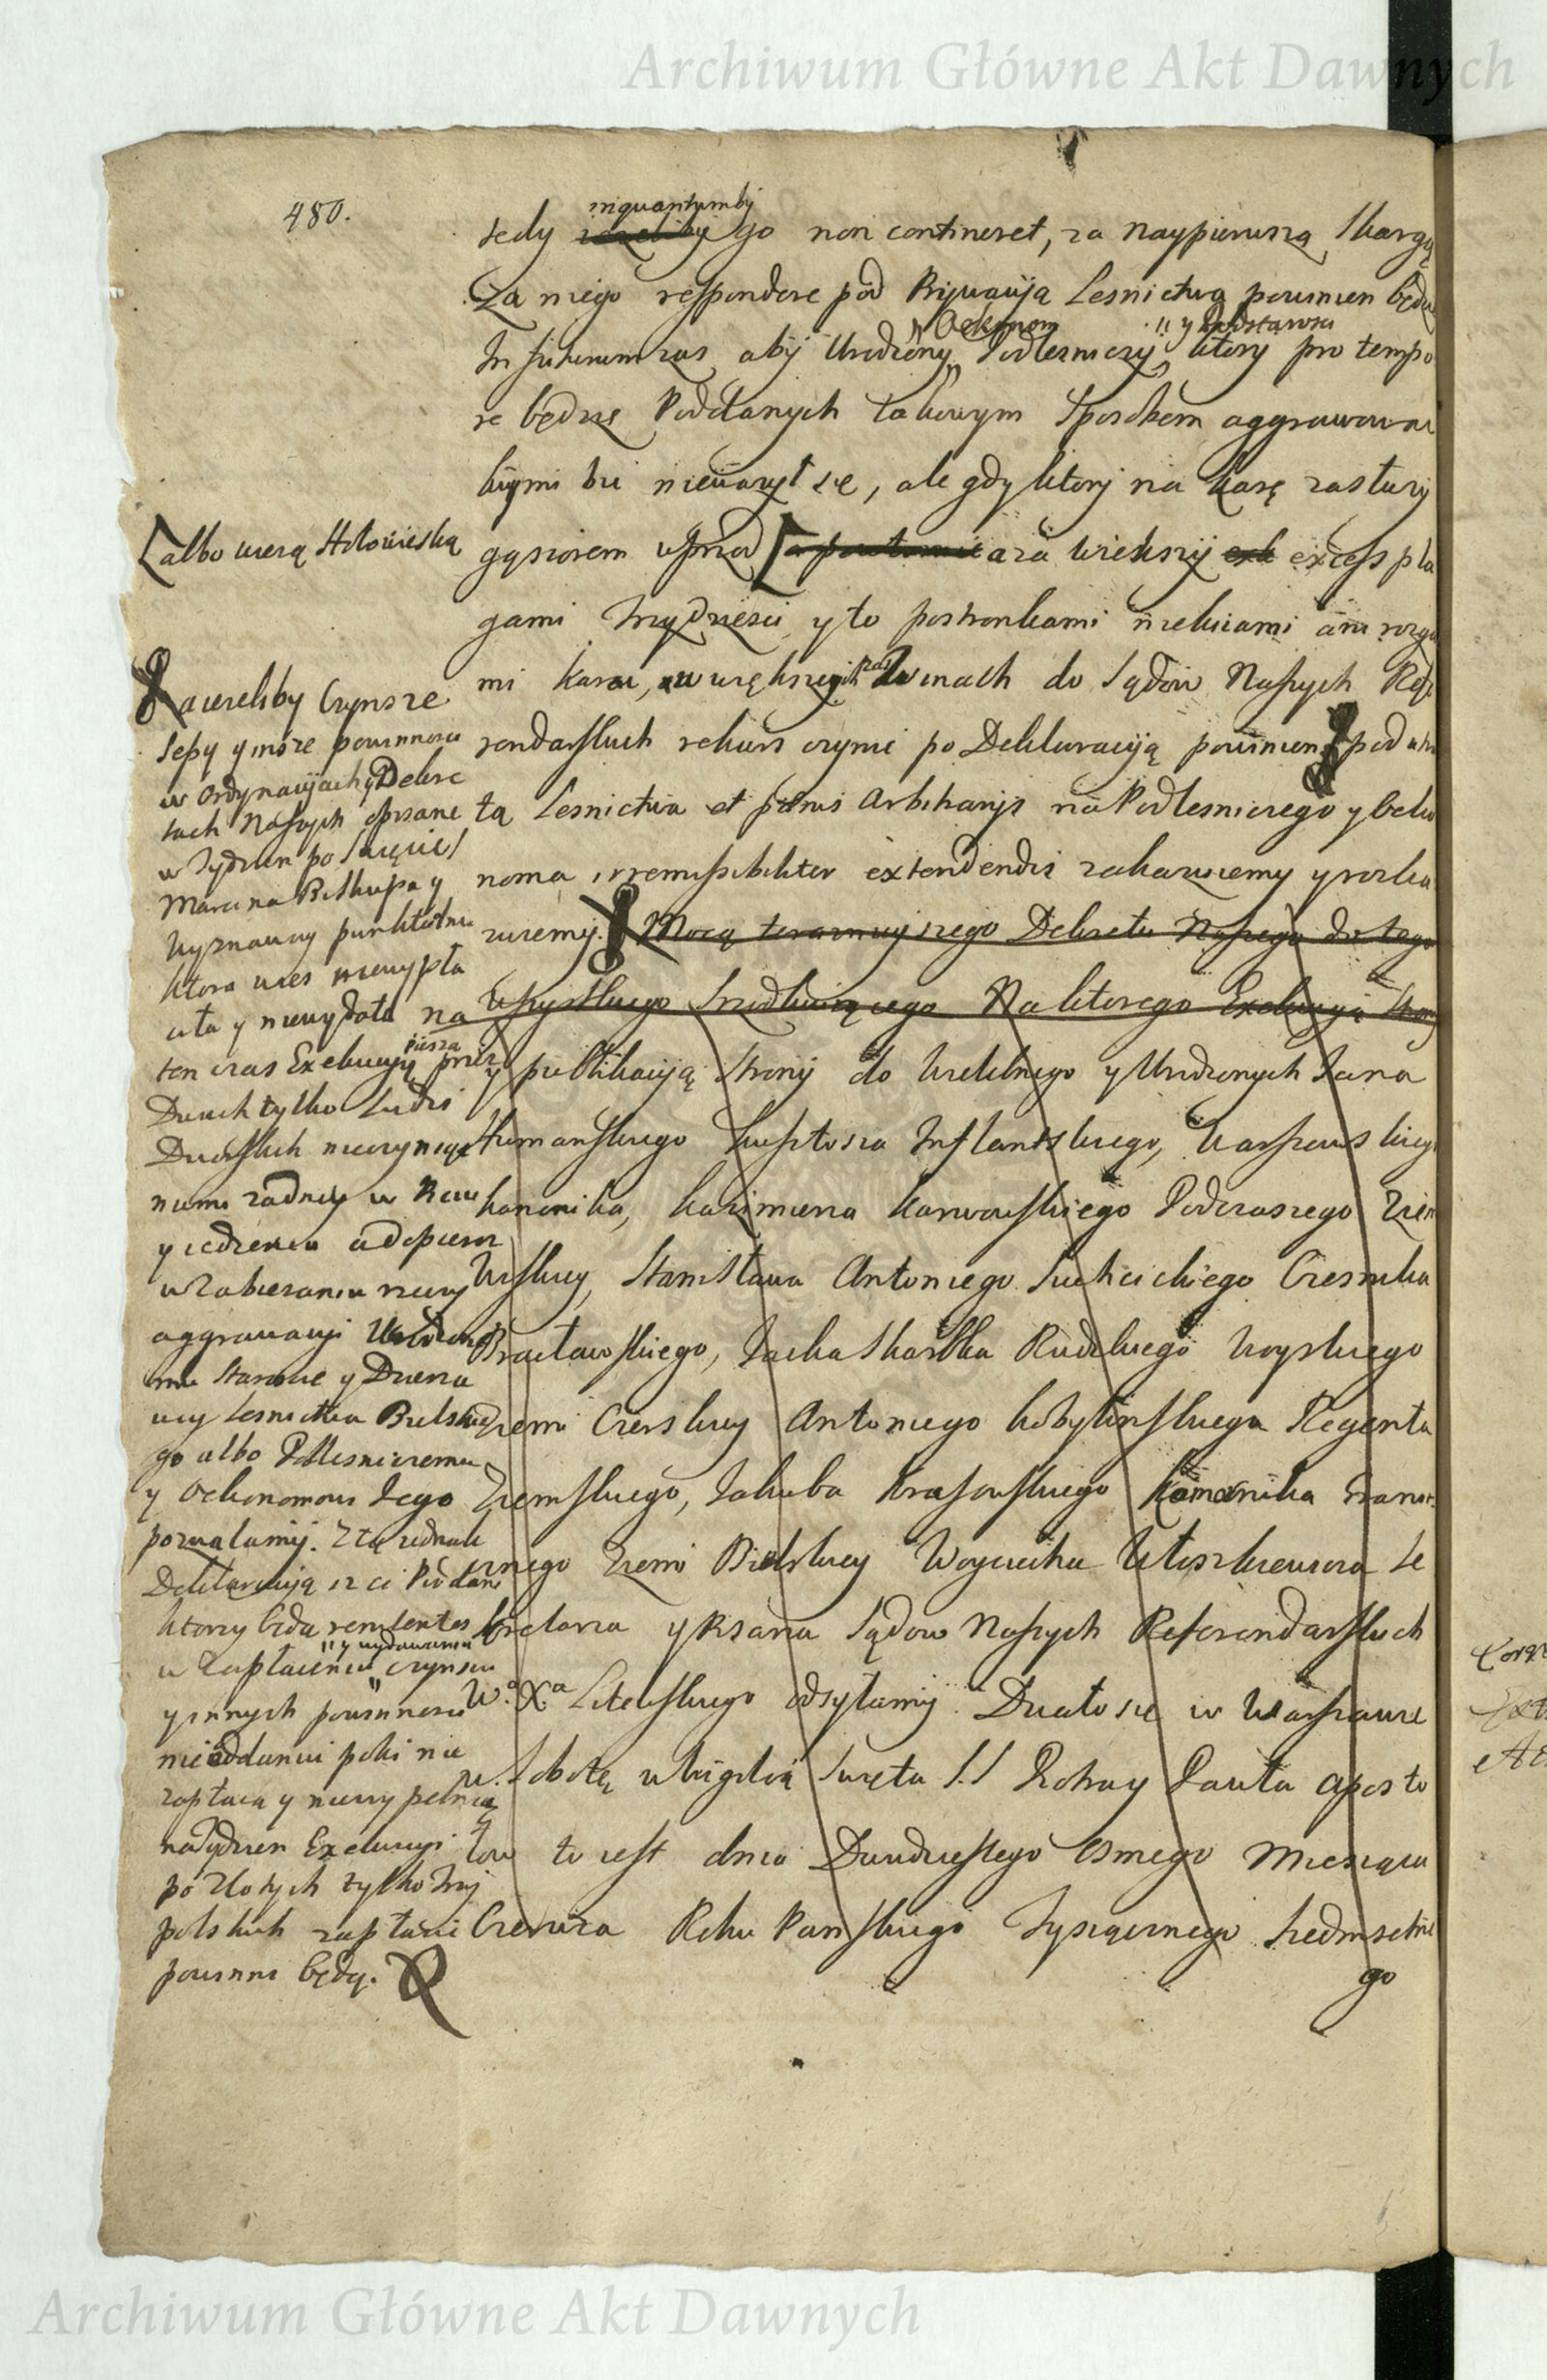 Archiwum Główne Akt Dawnych
480.
inquantumby
tedy jezeliby go non contineret, za naypierwszą skargą
Za niego respondere pod Prijwacyją Lesnictwa powinien będzie
„ Oekonom „ y Podstarosci
In futurum zas abÿ Urodzony „ Podlesniczy „ ktory pro tempo
re będzie Poddanych takowym Sposobem aggrawowac
kiymi bic nieważył się, ale gdy ktory na karę zasłuzy
gąsiorem wprzod [a powtornie a za większy exk excess pla
gami trzydziesci y to postronkami nie kiiami ani rozga
mi karac, w większych zas winach do Sądow Naszych Refe
rendarskich rekurs czynic po Deklaracyją powinien pod utra
tą Lesnictwa et pœnis arbitrarijs na Podlesniczego y Oeko
noma irremissibiliter extendendis zakazuiemy y rozka
zuiemy. Mocą teraznieyszego Dekretu Naszego do tego
wszystkiego Na ktorego Exekucyją Strony
y publikacyją Strony do Wielebnego y Urodzonych Jana
Humanskiego Kustosza Inflantskiego, Warszawskiego
kanonika, Kazimierza Karwowskiego Podczaszego Ziemi
Wiskiey, Stanisława Antoniego Suchcickiego Czesnika
Bracławskiego, Jacka Skarbka Rudzkiego Woyskiego
Ziemi Czerskiey Antoniego Kobylinskiego Regenta
Ziemskiego, Jakuba Krasowskiego Komornika Grani
cznego Ziemi Bielskiey Woyciecha Utoszkiewicza Se
kretarza y Pisarza Sądow Naszych Referendarskich
W.º X.ª Litewskiego odsyłamÿ. Działo się w Warszawie
w Sobotę w Wigilią Swięta S.S Piotra y Pawła aposto
łow to iest dnia Dwudziestego Osmego Miesiąca
Czerwca Roku Panskiego Tysiącznego Siedmsetne
go
[albo wieżą Hołowieską
a iezeliby Czynsze
Sepy y insze powinnosci
w Ordynacyiach y Dekre
tach Naszych opisane
w Tydzien po Swięcie S
Marcina Biskupa y
Wyznawcy punktualnie
ktora wies niewypła
ciła y niewydała na
ten czas Exekucyą pieszą przez
Dwuch tylko Ludzi
Dworskich nieczyniąc
nimi zadney w Piciu
y iedzeniu a dopiero
w Zabieraniu rzeczy
aggrawacyi Urodzone
mu Staroscie y Dzierza
wcy Lesnictwa Bielskie
go albo Podlesniczemu
y Oekonomowi Jego
pozwalamÿ. Z tą iednak
Deklaracyią iz ci Poddani
ktorzy będą renitentes
„ y wydawaniu
w Zapłaceniu „ czynszu
y innych powinnosci
nieoddaniu poki nie
zapłacą y niewypełnią
na Tydzien Exekucyi
po Złotych tylko trzy
polskich zapłacic
powinni będą.
Archiwum Główne Akt Dawnych